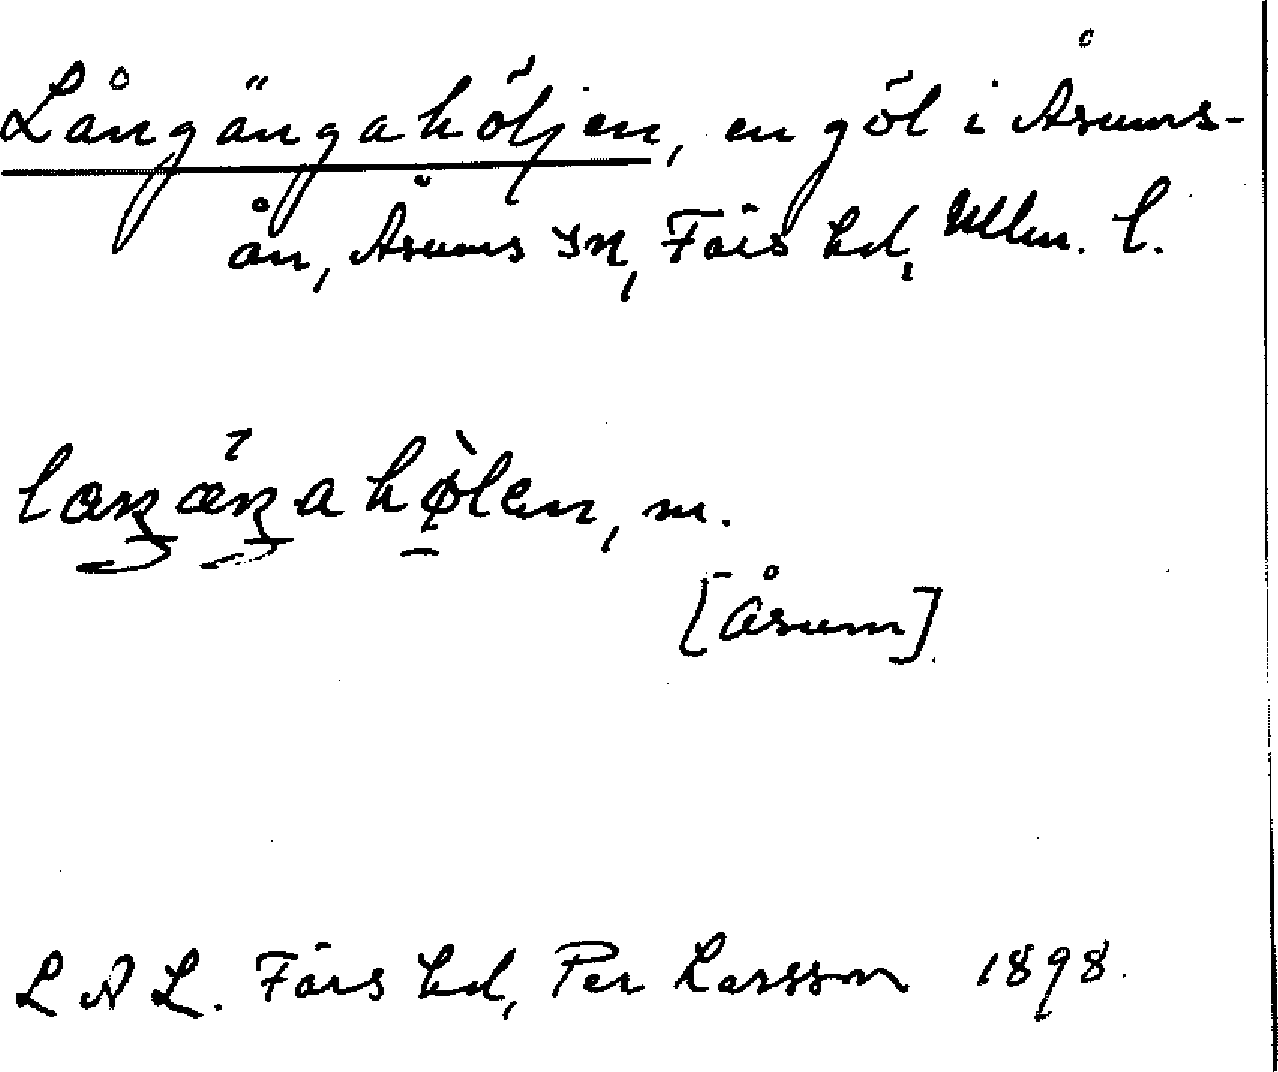 Långängahöljen, en göl i Åsums-
ån, Åsums sn, Färs hd, Mlm. l.
laŋæŋahølen, m.
[Åsum].
L A L. Färs hd, Per Larsson 1898.